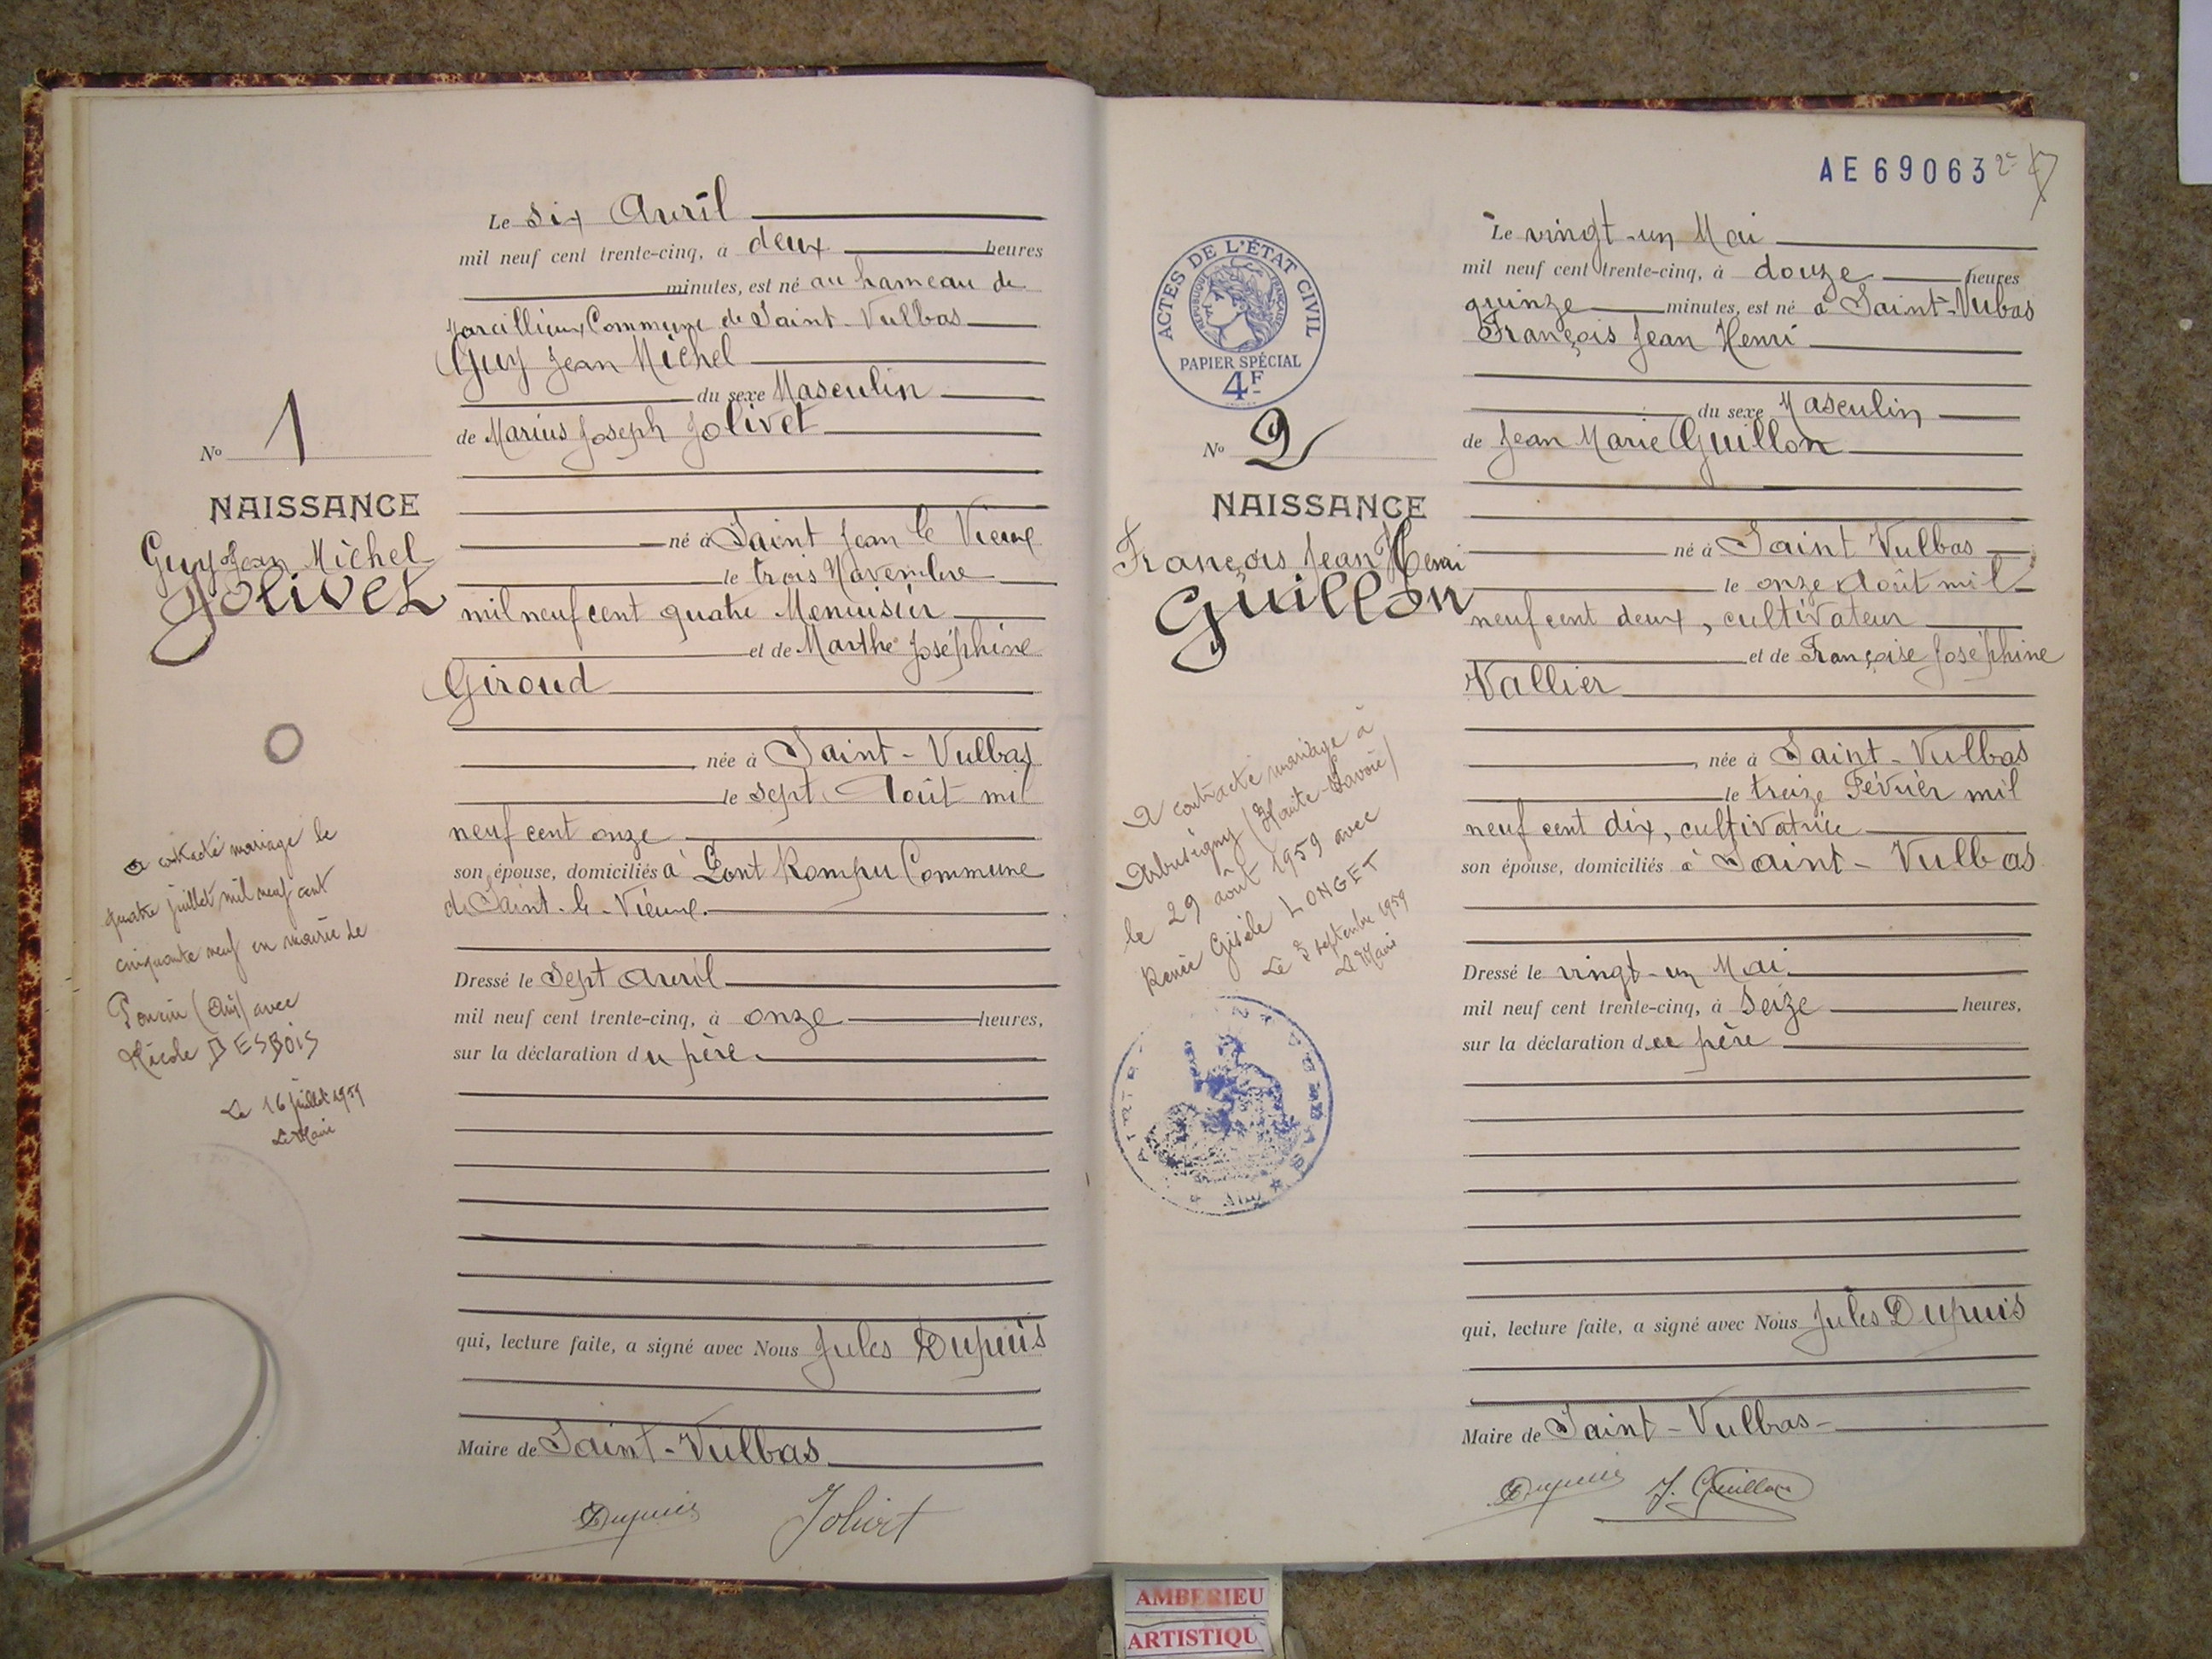 Le Six Avril
mil neuf cent trente-cinq, à deux heures
minutes, est né au hameau de
Marcillieux Commune de Saint-Vulbas
Guy Jean Michel
du sexe Masculin
de Marius Joseph Jolivet
né à Saint Jean le Vieux
le trois Novembre
mil neuf cent quatre Menuisier
et de Marthe Joséphine
Giroud
née à Saint-Vulbas
le Sept Août mil
neuf cent onze
son épouse, domiciliés à Pont Rompu Commune
de Saint-le-Vieux.
Dressé le Sept Avril
mil neuf cent trente-cinq, à onze heures,
sur la déclaration du père.
qui, lecture faite, a signé avec Nous Jules Dupuis
Maire de Saint-Vulbas
Dupuis Jolivet
No 1
NAISSANCE
Guy Jean Michel
Jolivet
a contracté mariage le
quatre juillet mil neuf cent
cinquante neuf en mairie de
Poncin (Ain) avec
Nicole DESBOIS
Le 16 juillet 1959
Le Maire
AE69063
ACTES DE L'ÉTAT CIVIL
RÉPUBLIQUE FRANÇAISE
PAPIER SPÉCIAL
4F
No 2
NAISSANCE
François Jean Henri
Guillon
A contracté mariage à
Arbusigny (Haute-Savoie)
le 29 août 1959 avec
Renée Gisèle LONGET
Le 3 septembre 1959
Le Maire
Le vingt-un Mai
mil neuf cent trente-cinq, à douze heures
quinze minutes, est né à Saint-Vubas
François Jean Henri
du sexe Masculin
de Jean Marie Guillon
né à Saint Vulbas
le onze Août mil
neuf cent deux, cultivateur
et de Françoise Joséphine
Vallier
née à Saint-Vulbas
le treize Février mil
neuf cent dix, cultivatrice
son épouse, domiciliés à Saint-Vulbas
Dressé le vingt-un Mai
mil neuf cent trente-cinq, à Seize heures,
sur la déclaration du père
qui, lecture faite, a signé avec Nous Jules Dupuis
Maire de Saint-Vulbas
Dupuis J. Guillon
AMBERIEU
ARTISTIQU